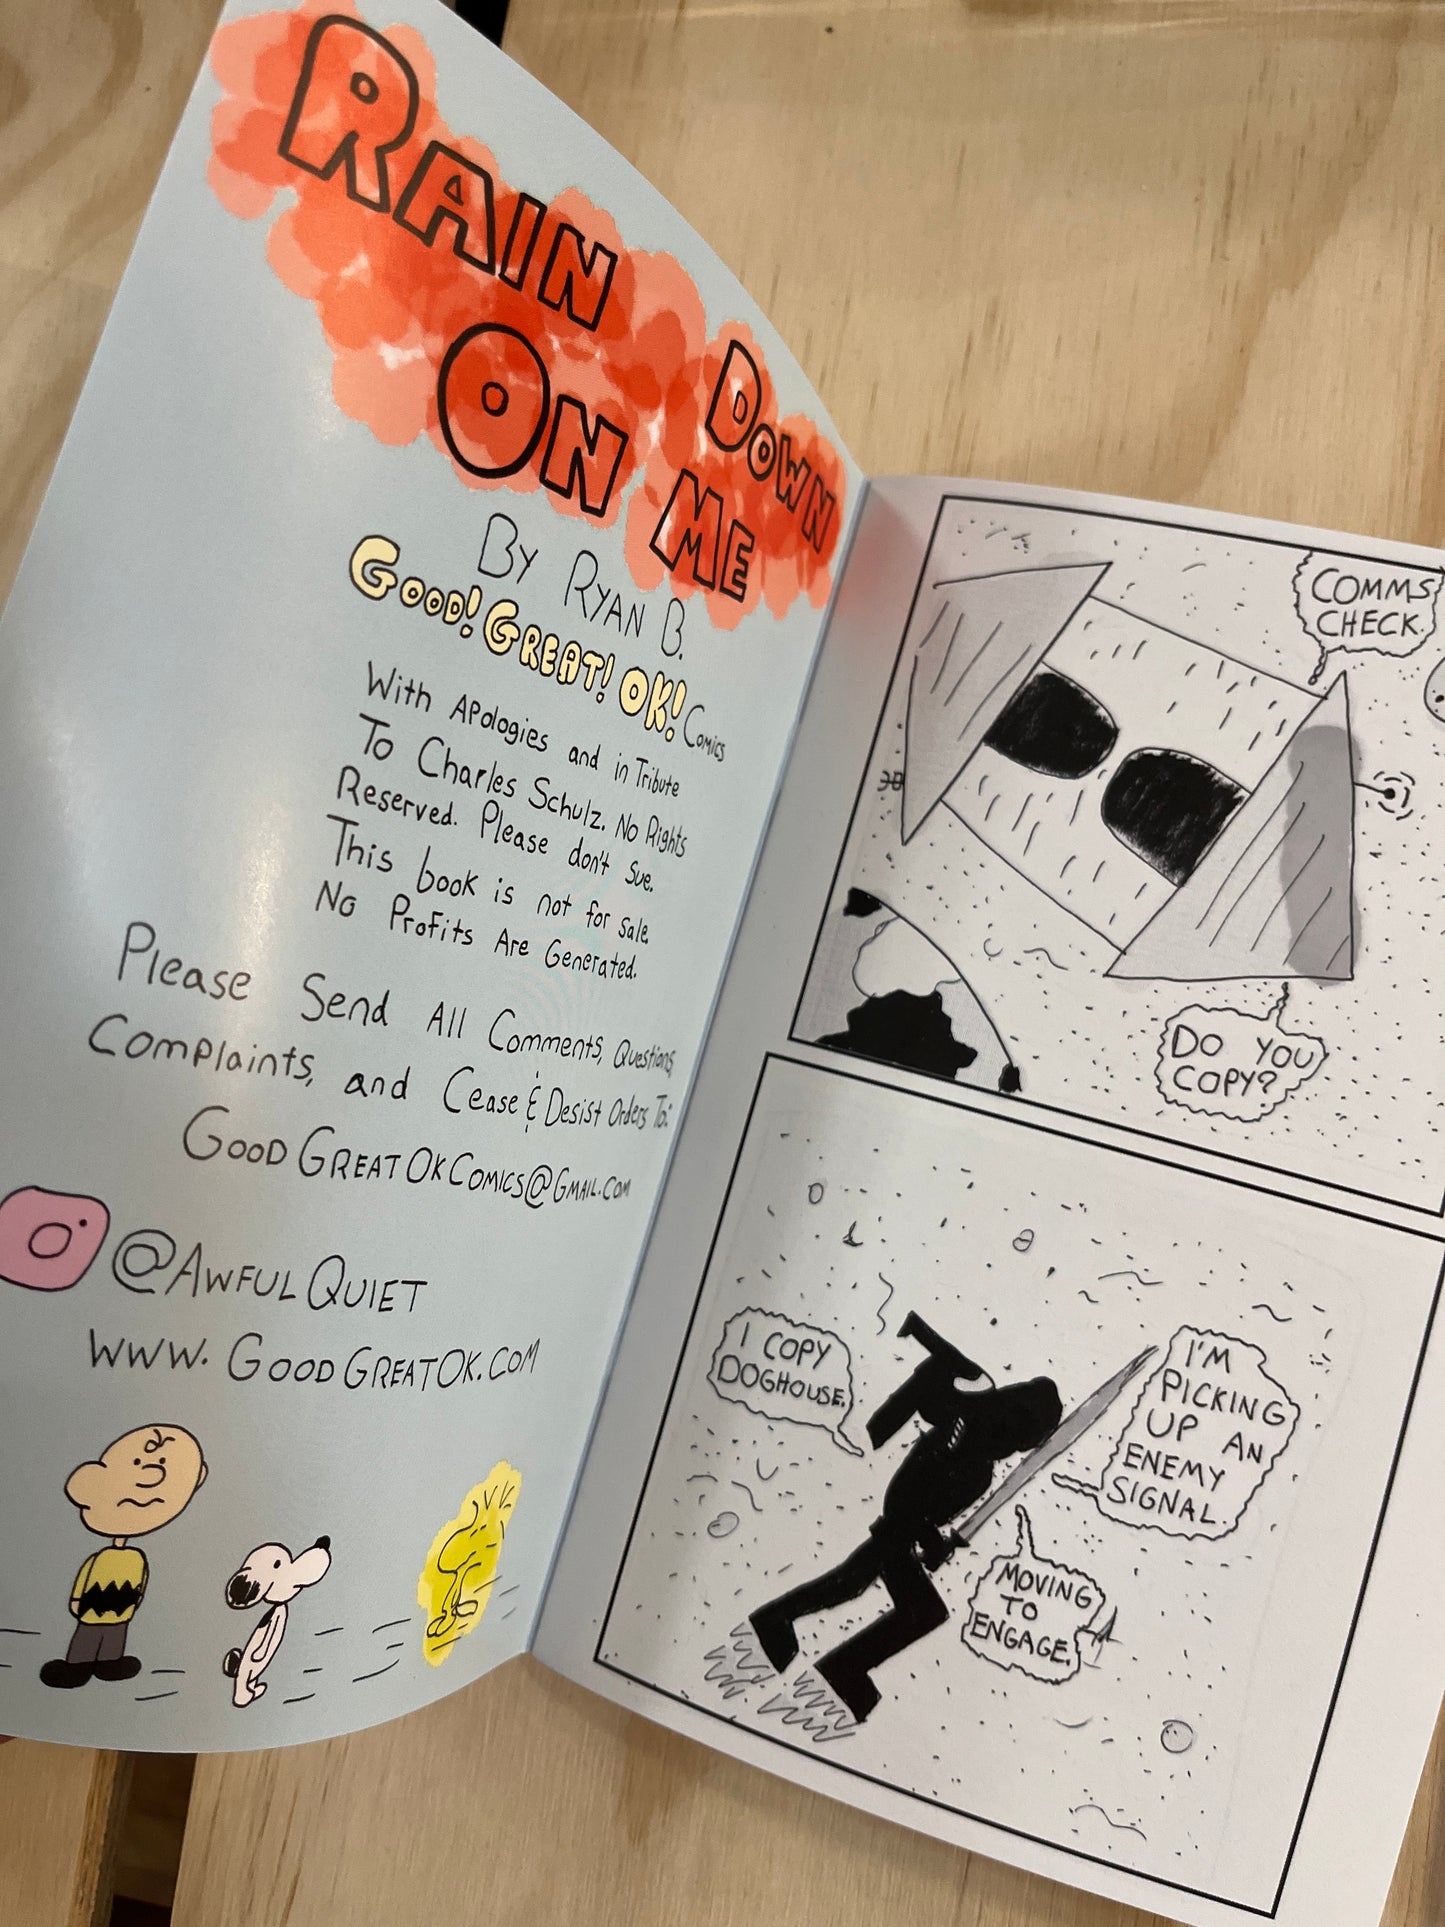 RAIN
DOWN
ON ME
BY RYAN B.
GOOD! GREAT! OK! COMICS
With APologies and in Tribute
To Charles Schulz. No Rights
Reserved. Please don't Sue.
This book is not for sale.
No Profits Are Generated.
Please Send All Comments, Questions,
Complaints, and Cease & Desist Orders To:
GOODGREATOKCOMICS@GMAIL.COM
@AWFULQUIET
WWW.GOODGREATOK.COM
COMMS
CHECK.
DO YOU
COPY?
I COPY
DOGHOUSE.
I'M
PICKING
UP AN
ENEMY
SIGNAL.
MOVING
TO
ENGAGE.